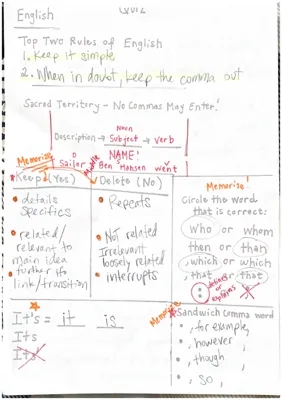 English
QUIZ
Top Two Rules of English
1. Keep it simple
2. When in doubt, keep the comma out
Sacred Territory - No Commas May Enter!
Noun
Description → Subject → verb
NAME:
D
Sailor Ben Hansen went
Memorize
Middle
Keep (Yes)
• details
specifics
• related/
relevant to
main idea
• further the
link/transition
Delete (No)
• Repeats
• Not related
Irrelevant
loosely related
• interrupts
Memorize!
Circle the word
that is correct:
who or whom
then or than
, which or which
, that or that
: defines or
explains
It's = it is
Its
Its'
Memorize
Sandwich comma word
• , for example,
• , however ,
• , though ,
• , so ,